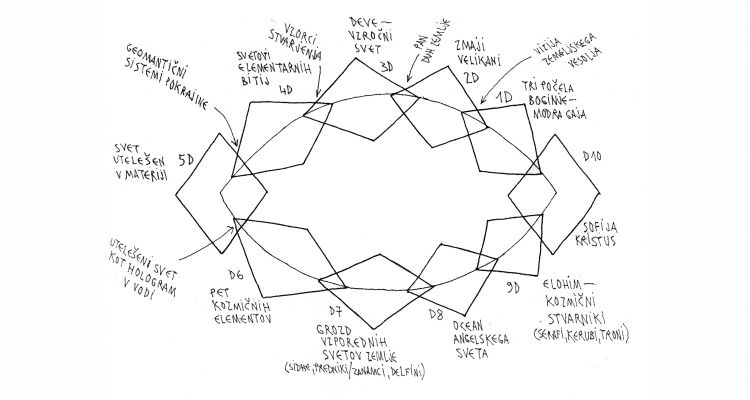 DEVE –
VZROČNI
SVET
3D
PAN
DUH ZEMLJE
ZMAJI
VELIKANI
2D
VIZIJA
ZEMELJSKEGA
VESOLJA
1D
TRI POČELA
BOGINJE –
MODRA GAJA
D10
SOFIJA
KRISTUS
ELOHIM –
KOZMIČNI
STVARNIKI
(SERAFI, KERUBI, TRONI)
9D
OCEAN
ANGELSKEGA
SVETA
D8
D7
GROZD
VZPOREDNIH
SVETOV ZEMLJE
(SIDHE, PREDNIKI/ZANAMCI, DELFINI)
D6
PET
KOZMIČNIH
ELEMENTOV
UTELEŠENI SVET
KOT HOLOGRAM
V VODI
SVET
UTELEŠEN
V MATERIJI
5D
GEOMANTIČNI
SISTEMI POKRAJINE
SVETOVI
ELEMENTARNIH
BITIJ
4D
VZORCI
STVARJENJA